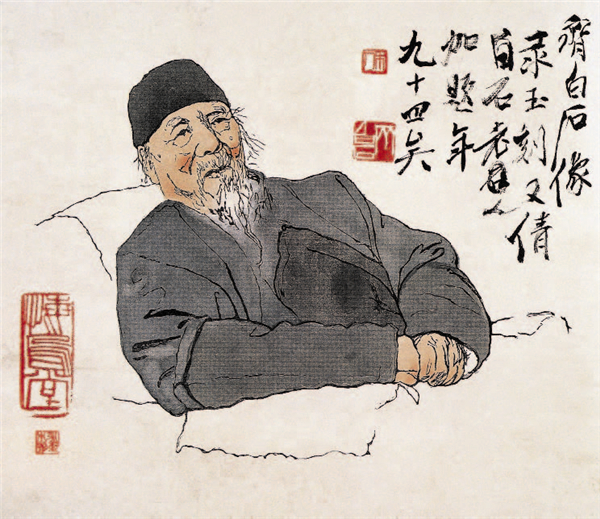 齊白石像
永玉刻又倩
白石老人
加題年
九十四矣